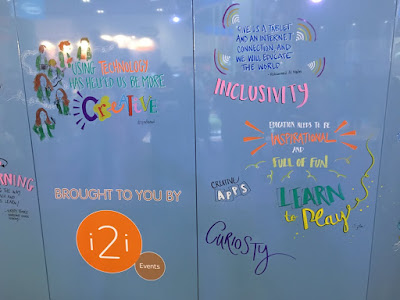 USING TECHNOLOGY
HAS HELPED US BE MORE
CREATIVE
GIVE US A TABLET
AND AN INTERNET
CONNECTION AND
WE WILL EDUCATE
THE WORLD
INCLUSIVITY
EDUCATION NEEDS TO BE
INSPIRATIONAL
AND
FULL OF FUN
CREATIVE
APPS
LEARN
to Play
CURIOSTY
BROUGHT TO YOU BY
i2i
Events